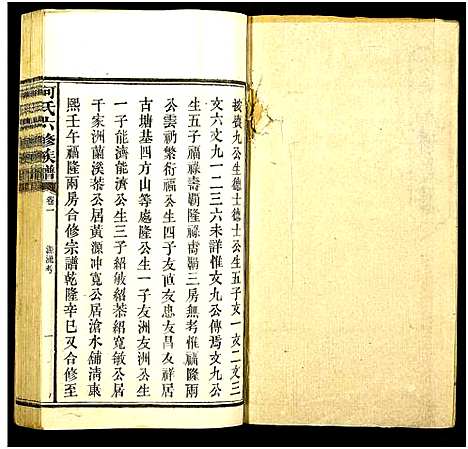 談濟九公生德士德士公生五子文一文二文三
文六文九一二三六未詳惟文九公傳焉文九公
生五子福祿壽覇隆祿壽覇三房無考惟福隆兩
公雲礽繁衍福公生四子友直友忠友昌友祥居
古塘基四方山等處隆公生一子友洲友洲公生
一子能濟能濟公生三子紹敏紹泰紹寬敏公居
千家洲蘭溪泰公居黃源冲寬公居滄水舖淸康
熙壬午福隆兩房合修宗譜乾隆辛巳又合修至
何氏六修族譜
卷一
源流考
一